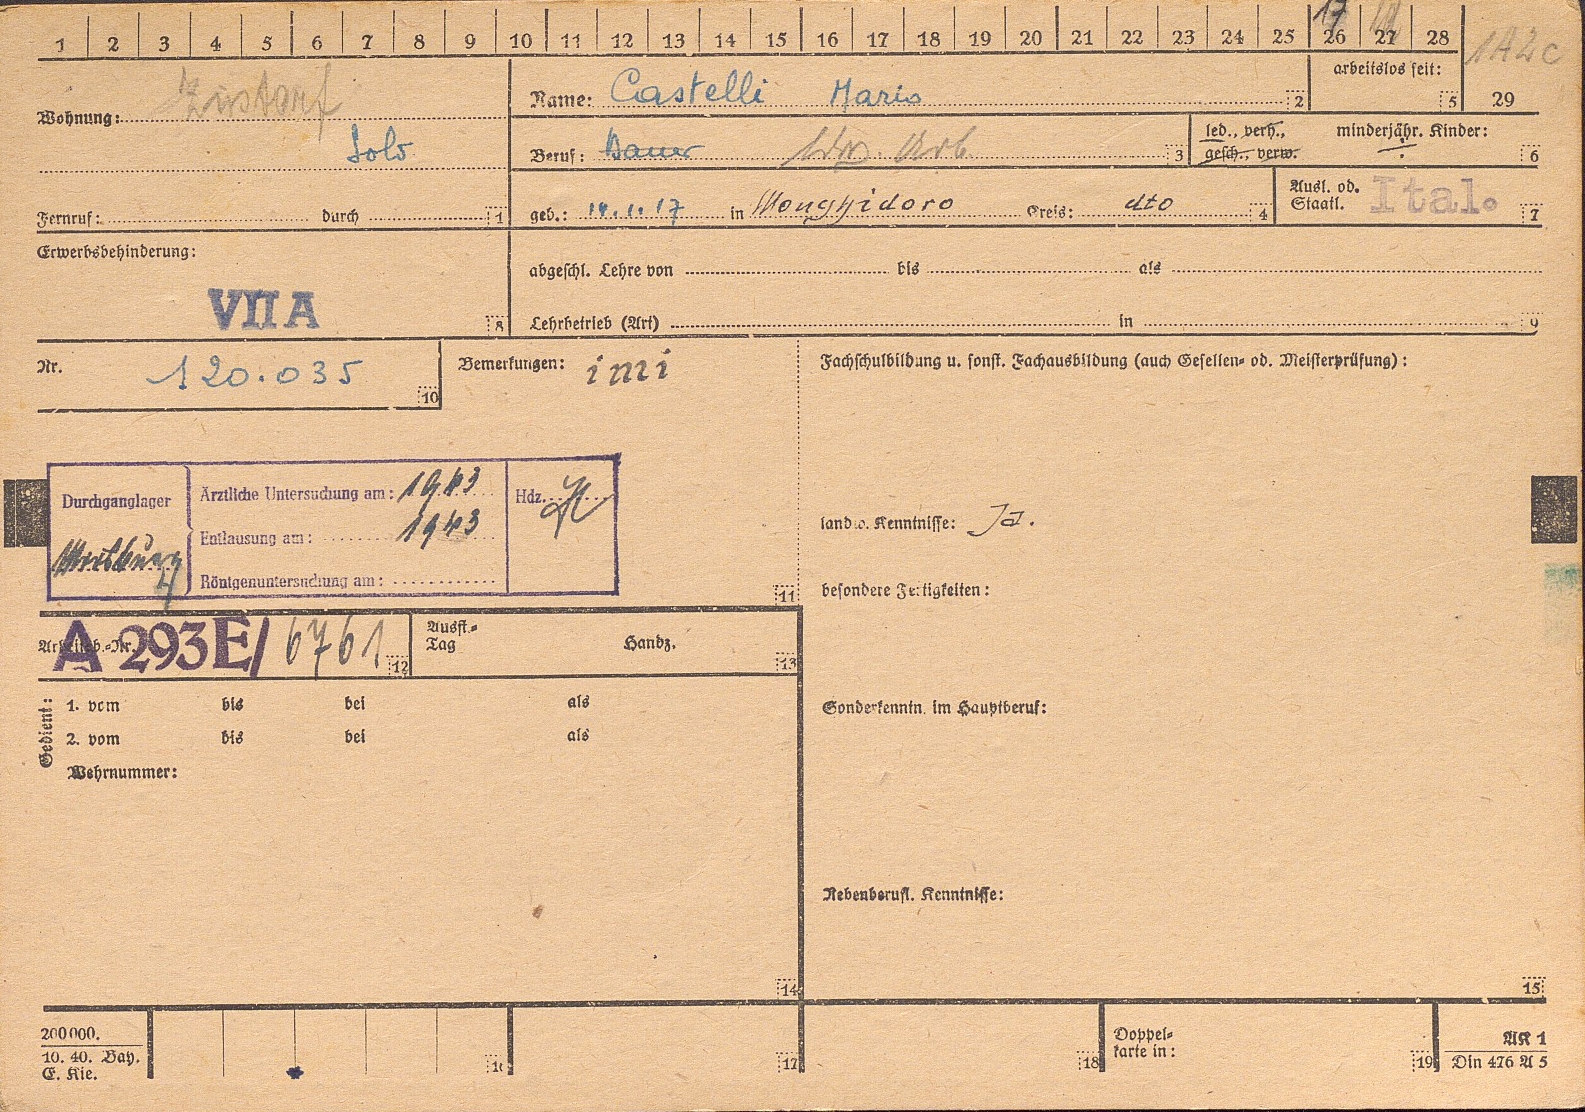 1 2 3 4 5 6 7 8 9 10 11 12 13 14 15 16 17 18 19 20 21 22 23 24 25 26 27 28
17
1A2c
29
Wohnung:
Zustorf
Solo
Fernruf: durch 1
Name: Castelli Mario 2
arbeitslos seit: 5
Beruf: Bauer ldw. Arb. 3
led., verh.,
gesch., verw.
minderjähr. Kinder: 6
geb.: 14.1.17 in Monghidoro Kreis: dto 4
Ausl. od.
Staatl. Ital. 7
Erwerbsbehinderung:
VII A 8
abgeschl. Lehre von bis als
Lehrbetrieb (Art) in 9
Nr. 120.035 10
Bemerkungen: imi
Fachschulbildung u. sonst. Fachausbildung (auch Gesellen- od. Meisterprüfung):
Durchganglager
Ärztliche Untersuchung am: 1943
Entlausung am: 1943
Röntgenuntersuchung am:
Hdz.
11
landw. Kenntnisse: Ja.
besondere Fertigkeiten:
Arbeitsb.-Nr. A 293E/ 6761 12
Ausst.-
Tag
Handz. 13
Gedient:
1. vom bis bei als
2. vom bis bei als
Wehrnummer:
14
Sonderkenntn. im Hauptberuf:
Nebenberufl. Kenntnisse:
15
200000.
10. 40. Bay.
E. Kie.
16
17
18
Doppel-
karte in: 19
AK 1
Din 476 A 5